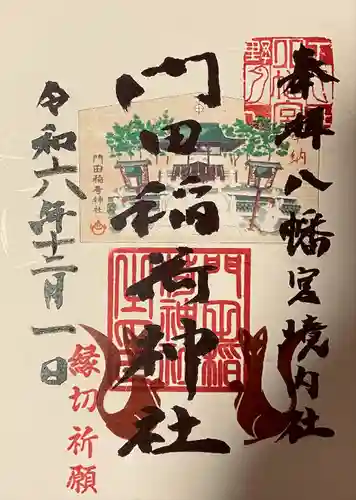 奉拝 八幡宮境内社
門田稲荷神社
令和六年十二月一日
縁切祈願
門田稲荷神社
納